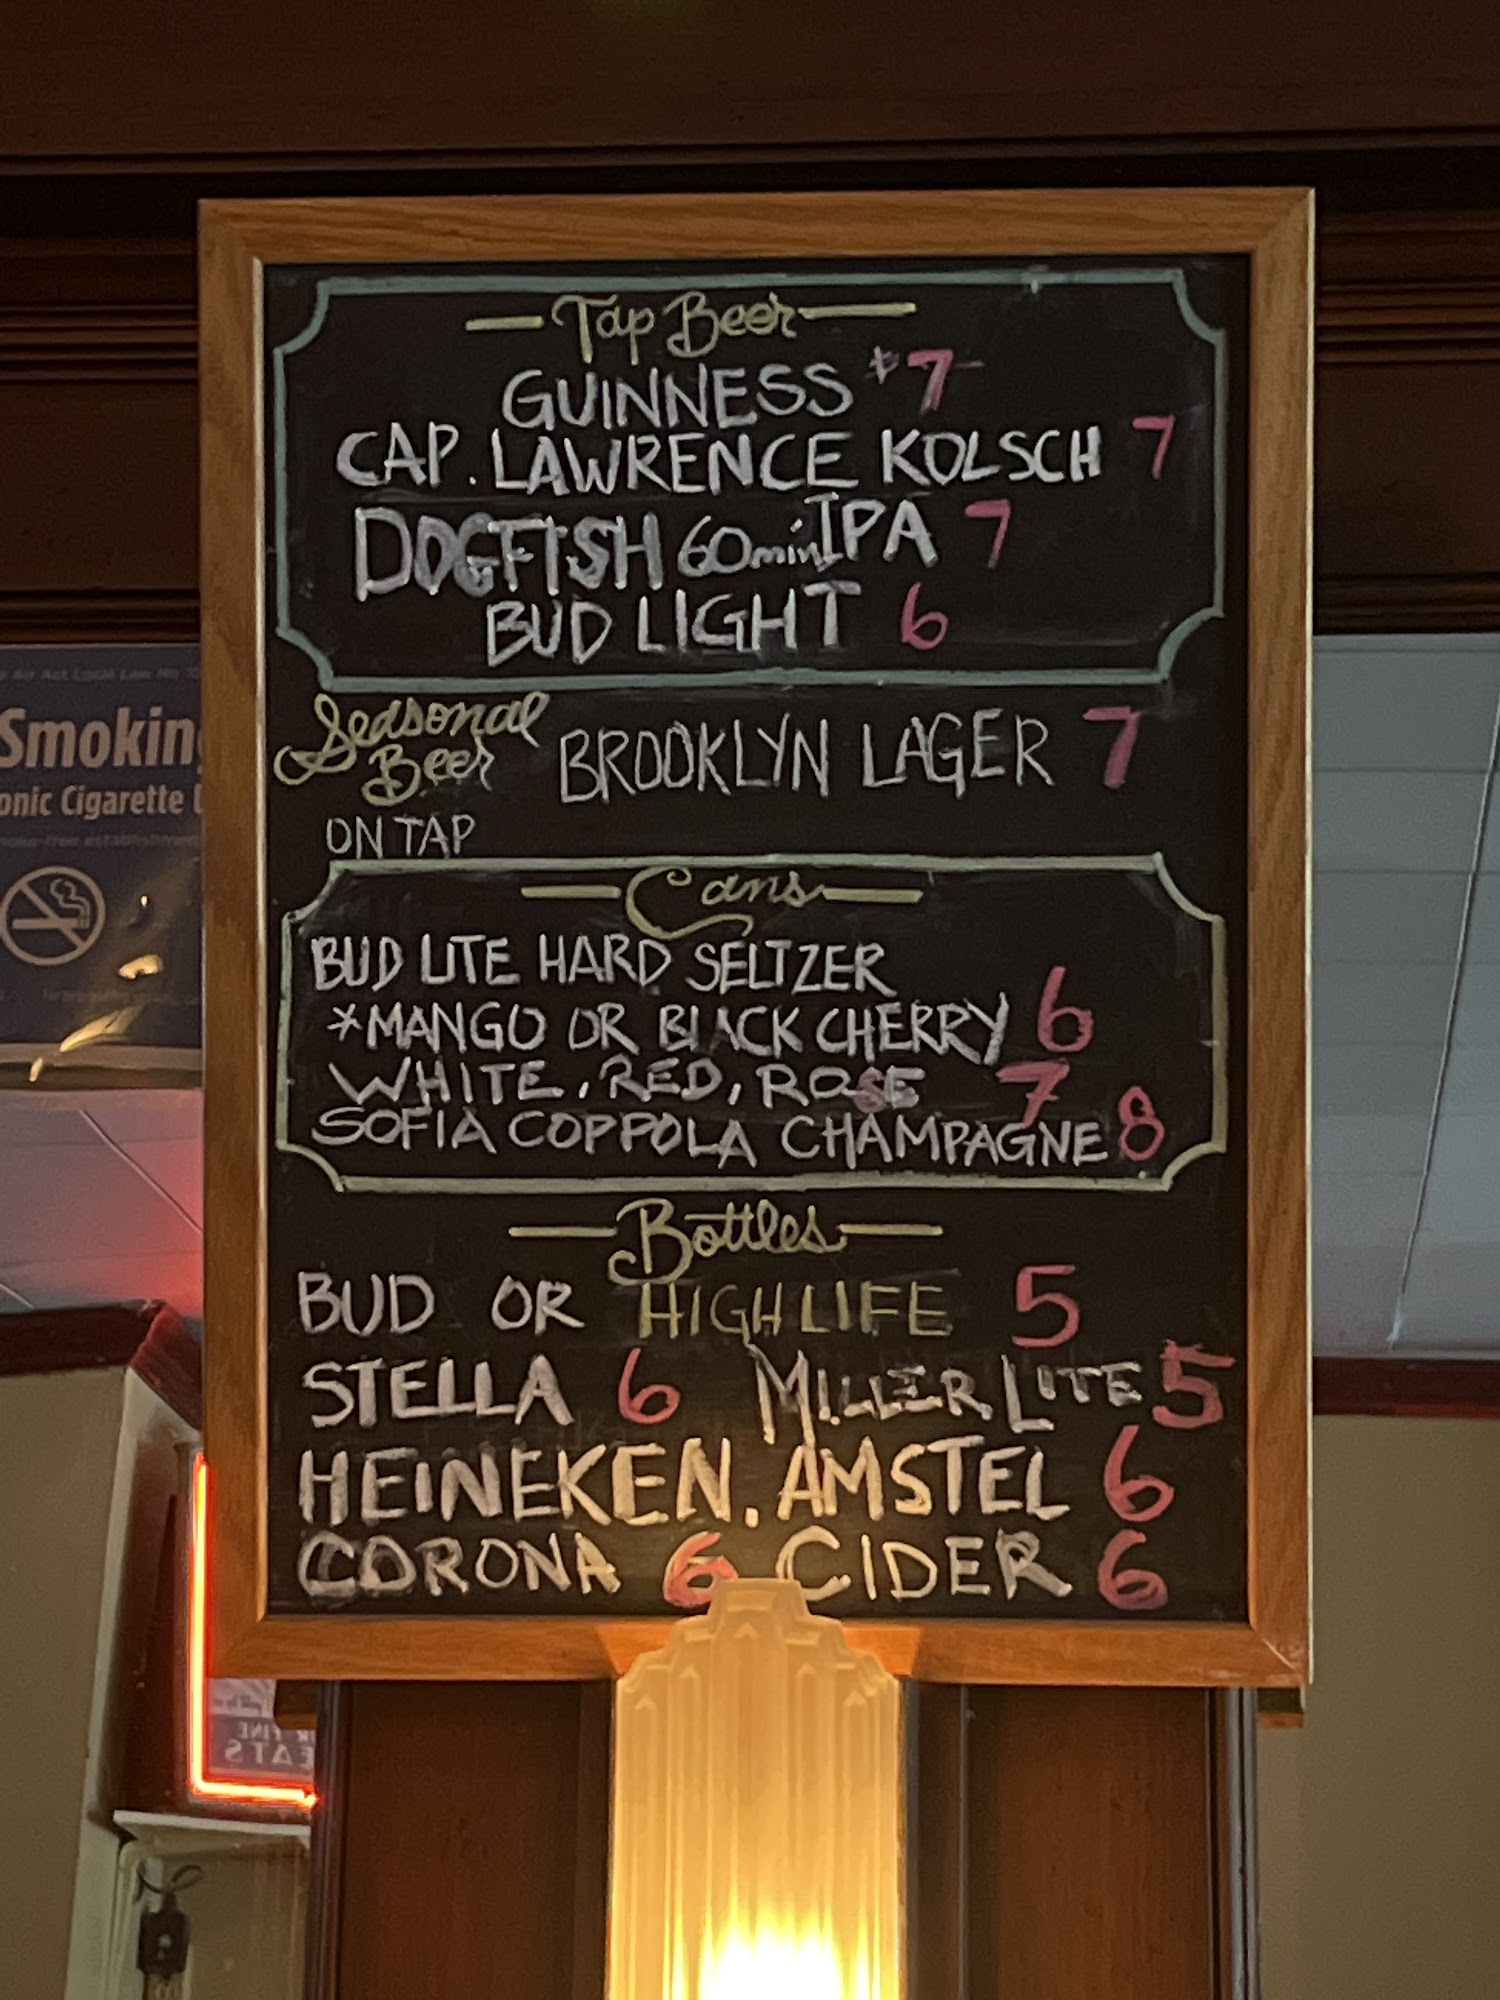 Tap Beer
GUINNESS $7
CAP. LAWRENCE KOLSCH 7
DOGFISH 60min IPA 7
BUD LIGHT 6
Seasonal
Beer BROOKLYN LAGER 7
ON TAP
Cans
BUD LITE HARD SELTZER
*MANGO OR BLACK CHERRY 6
WHITE, RED, ROSE 7
SOFIA COPPOLA CHAMPAGNE 8
Bottles
BUD OR HIGH LIFE 5
STELLA 6 MILLER LITE 5
HEINEKEN. AMSTEL 6
CORONA 6 CIDER 6
Air Act Local Law No
Smokin
onic Cigarette
FINE
EATS